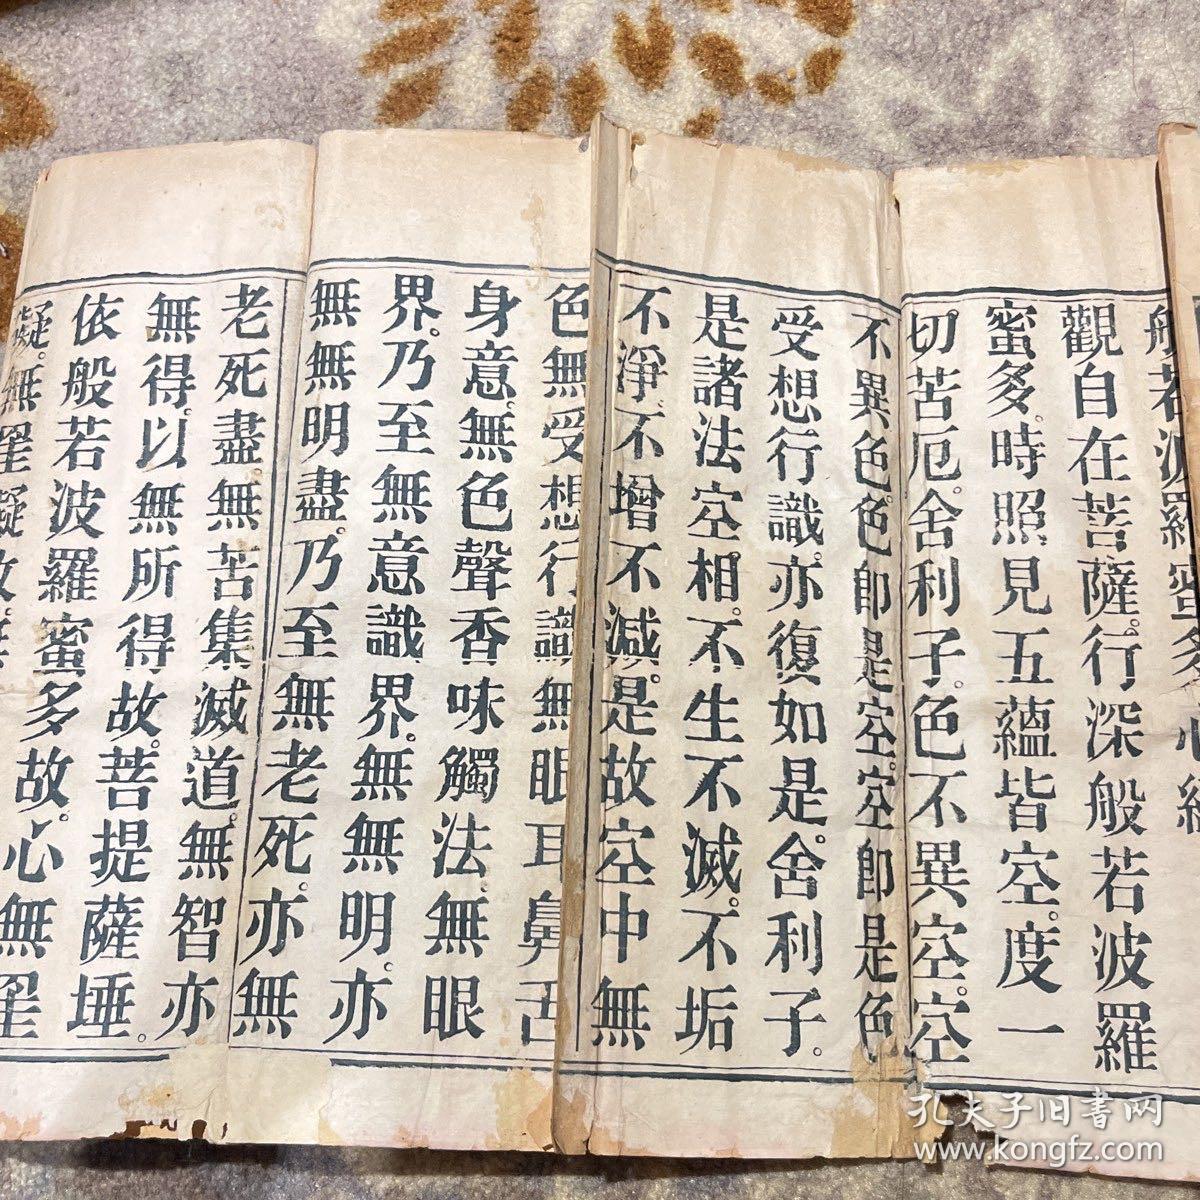 般若波羅蜜多心經
觀自在菩薩。行深般若波羅
蜜多。時照見五蘊皆空。度一
切苦厄。舍利子。色不異空。空
不異色。色即是空。空即是色
受想行識。亦復如是。舍利子。
是諸法空相。不生不滅。不垢
不淨。不增不減。是故空中無
色無受想行識無眼耳鼻舌
身意。無色聲香味觸法。無眼
界。乃至無意識界。無無明。亦
無無明盡。乃至無老死。亦無
老死盡。無苦集滅道。無智亦
無得。以無所得故。菩提薩埵。
依般若波羅蜜多故。心無罣
礙。無罣礙故。無
孔夫子旧书网
www.kongfz.com